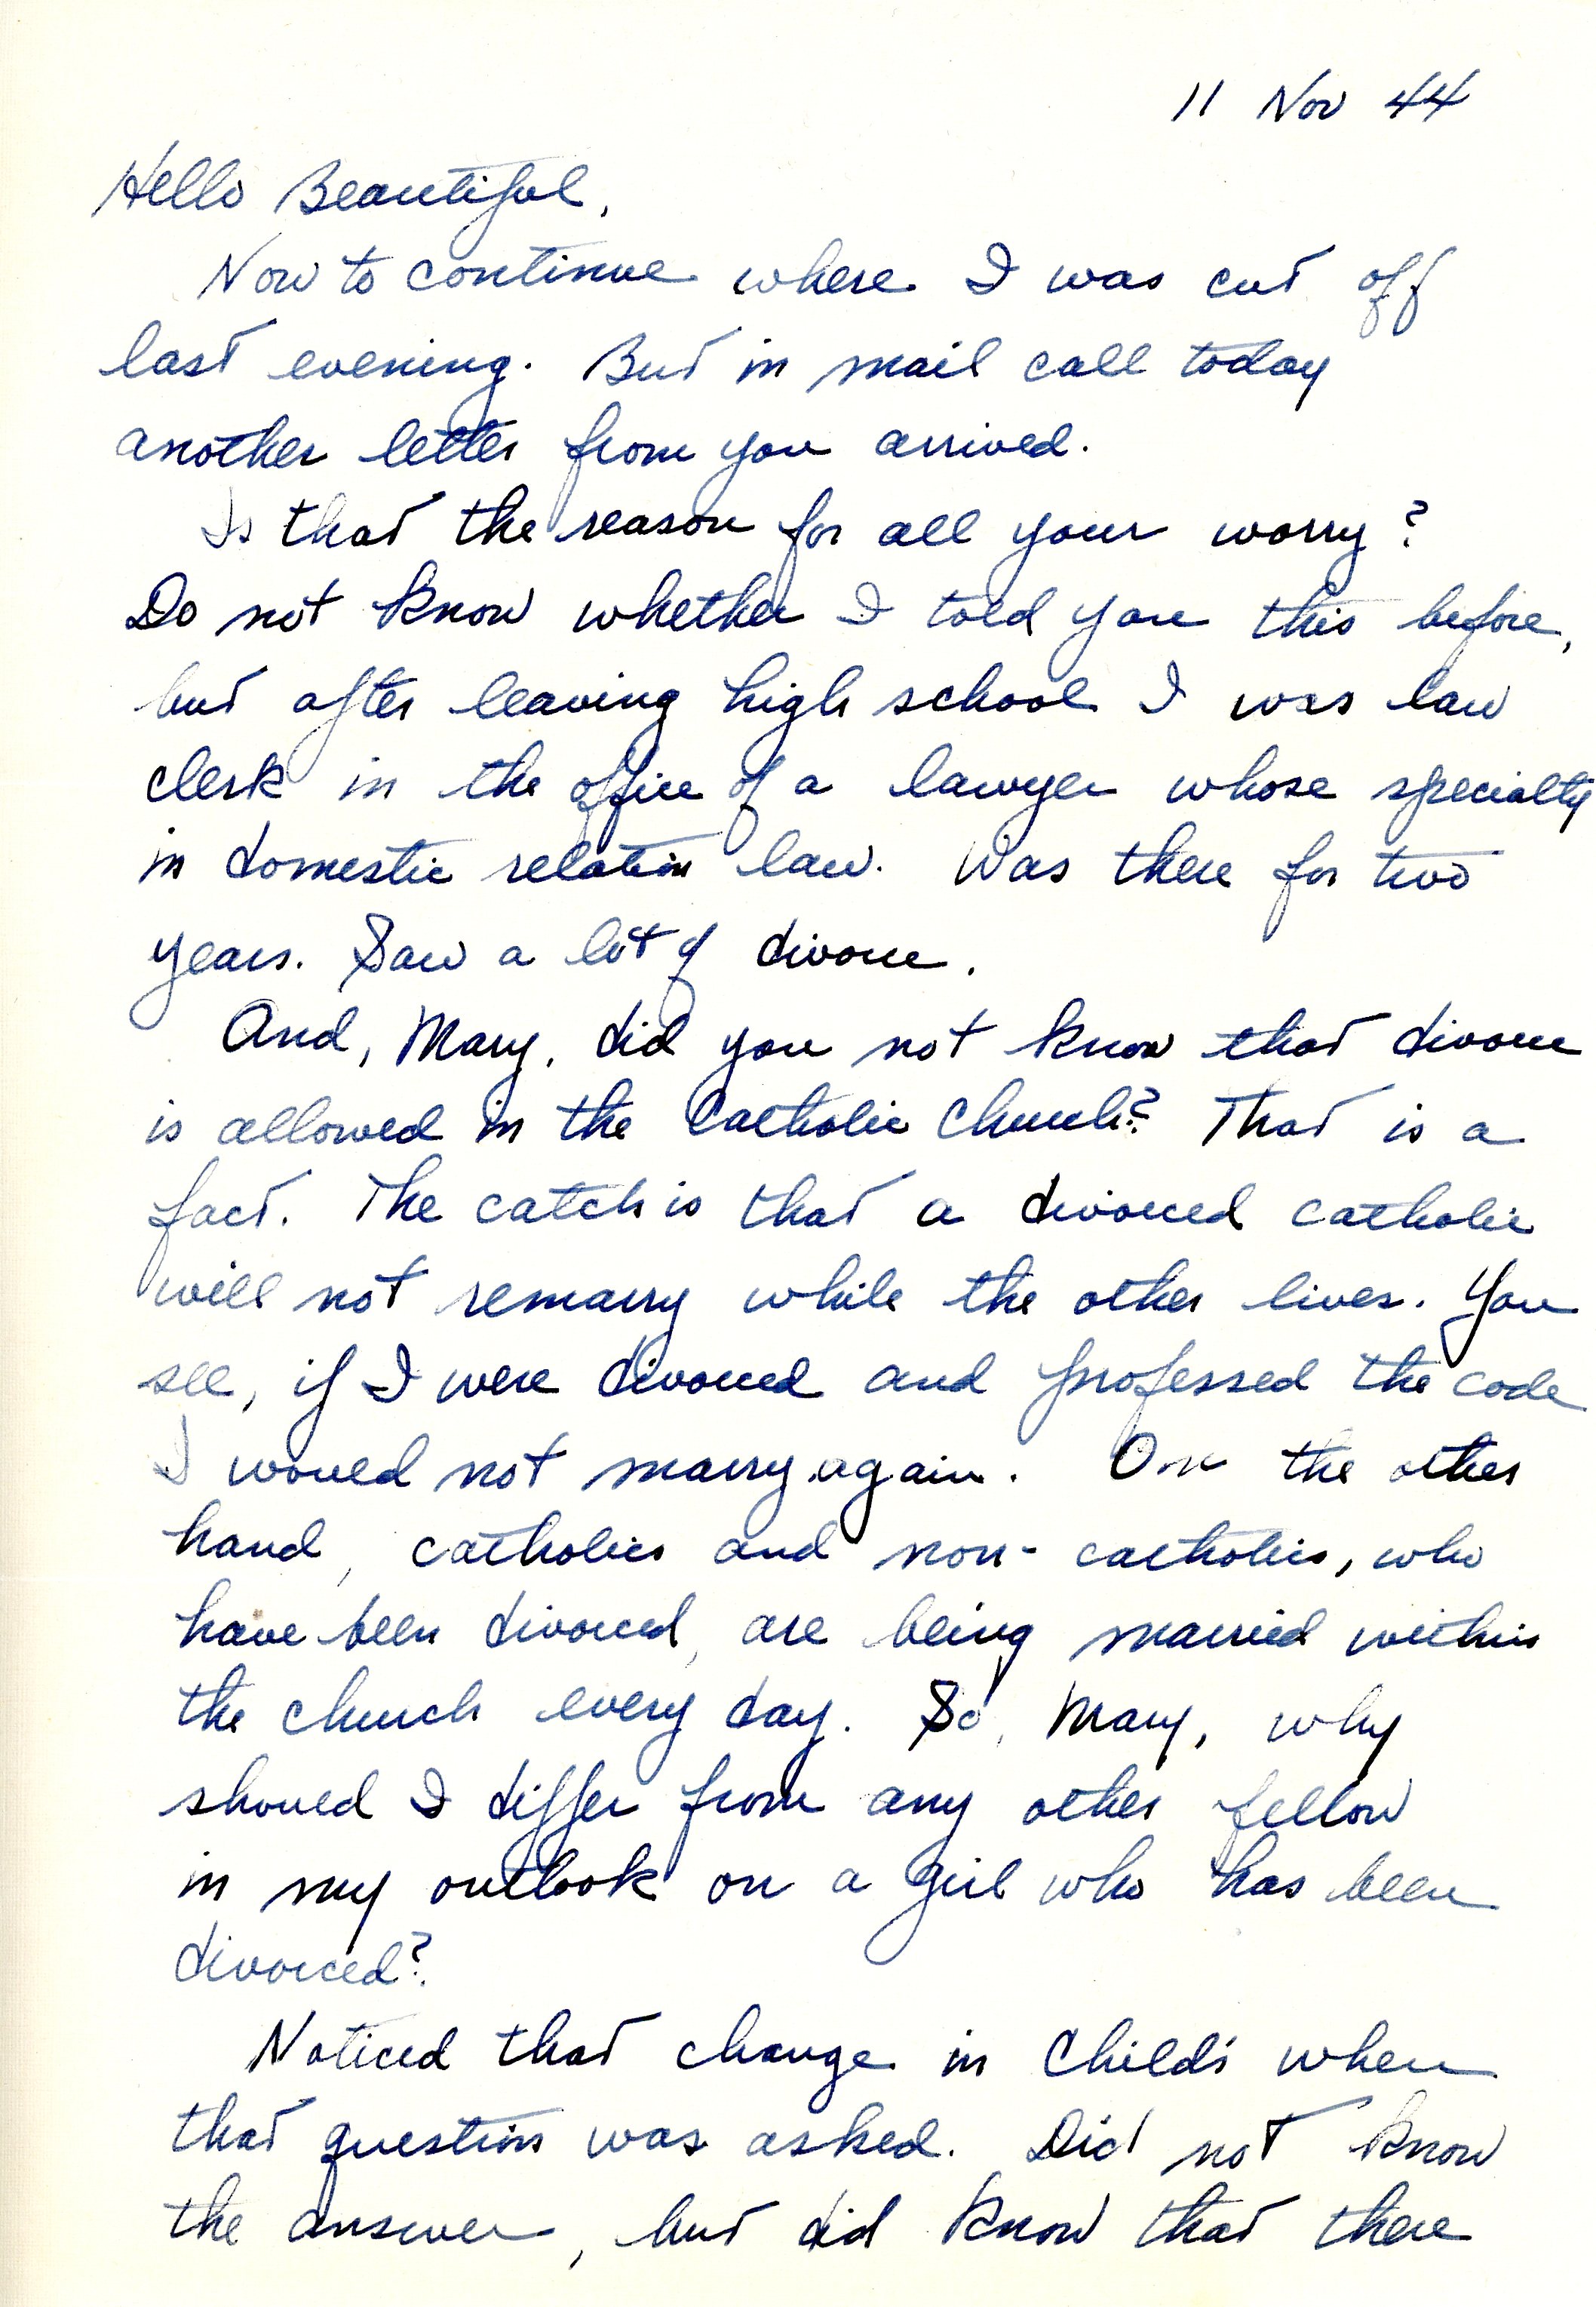 11 Nov 44
Hello Beautiful,
Now to continue where I was cut off
last evening. But in mail call today
another letter from you arrived.
Is that the reason for all your worry?
Do not know whether I told you this before,
but after leaving high school I was law
clerk in the office of a lawyer whose specialty
in domestic relation law. Was there for two
years. Saw a lot of divorce.
And, Mary, did you not know that divorce
is allowed in the Catholic Church? That is a
fact. The catch is that a divorced catholic
will not remarry while the other lives. You
see, if I were divorced and professed the code
I would not marry again. On the other
hand, catholics and non-catholics, who
have been divorced, are being married within
the church every day. So, Mary, why
should I differ from any other fellow
in my outlook on a girl who has been
divorced?
Noticed that change in Child's when
that question was asked. Did not know
the answer, but did know that there